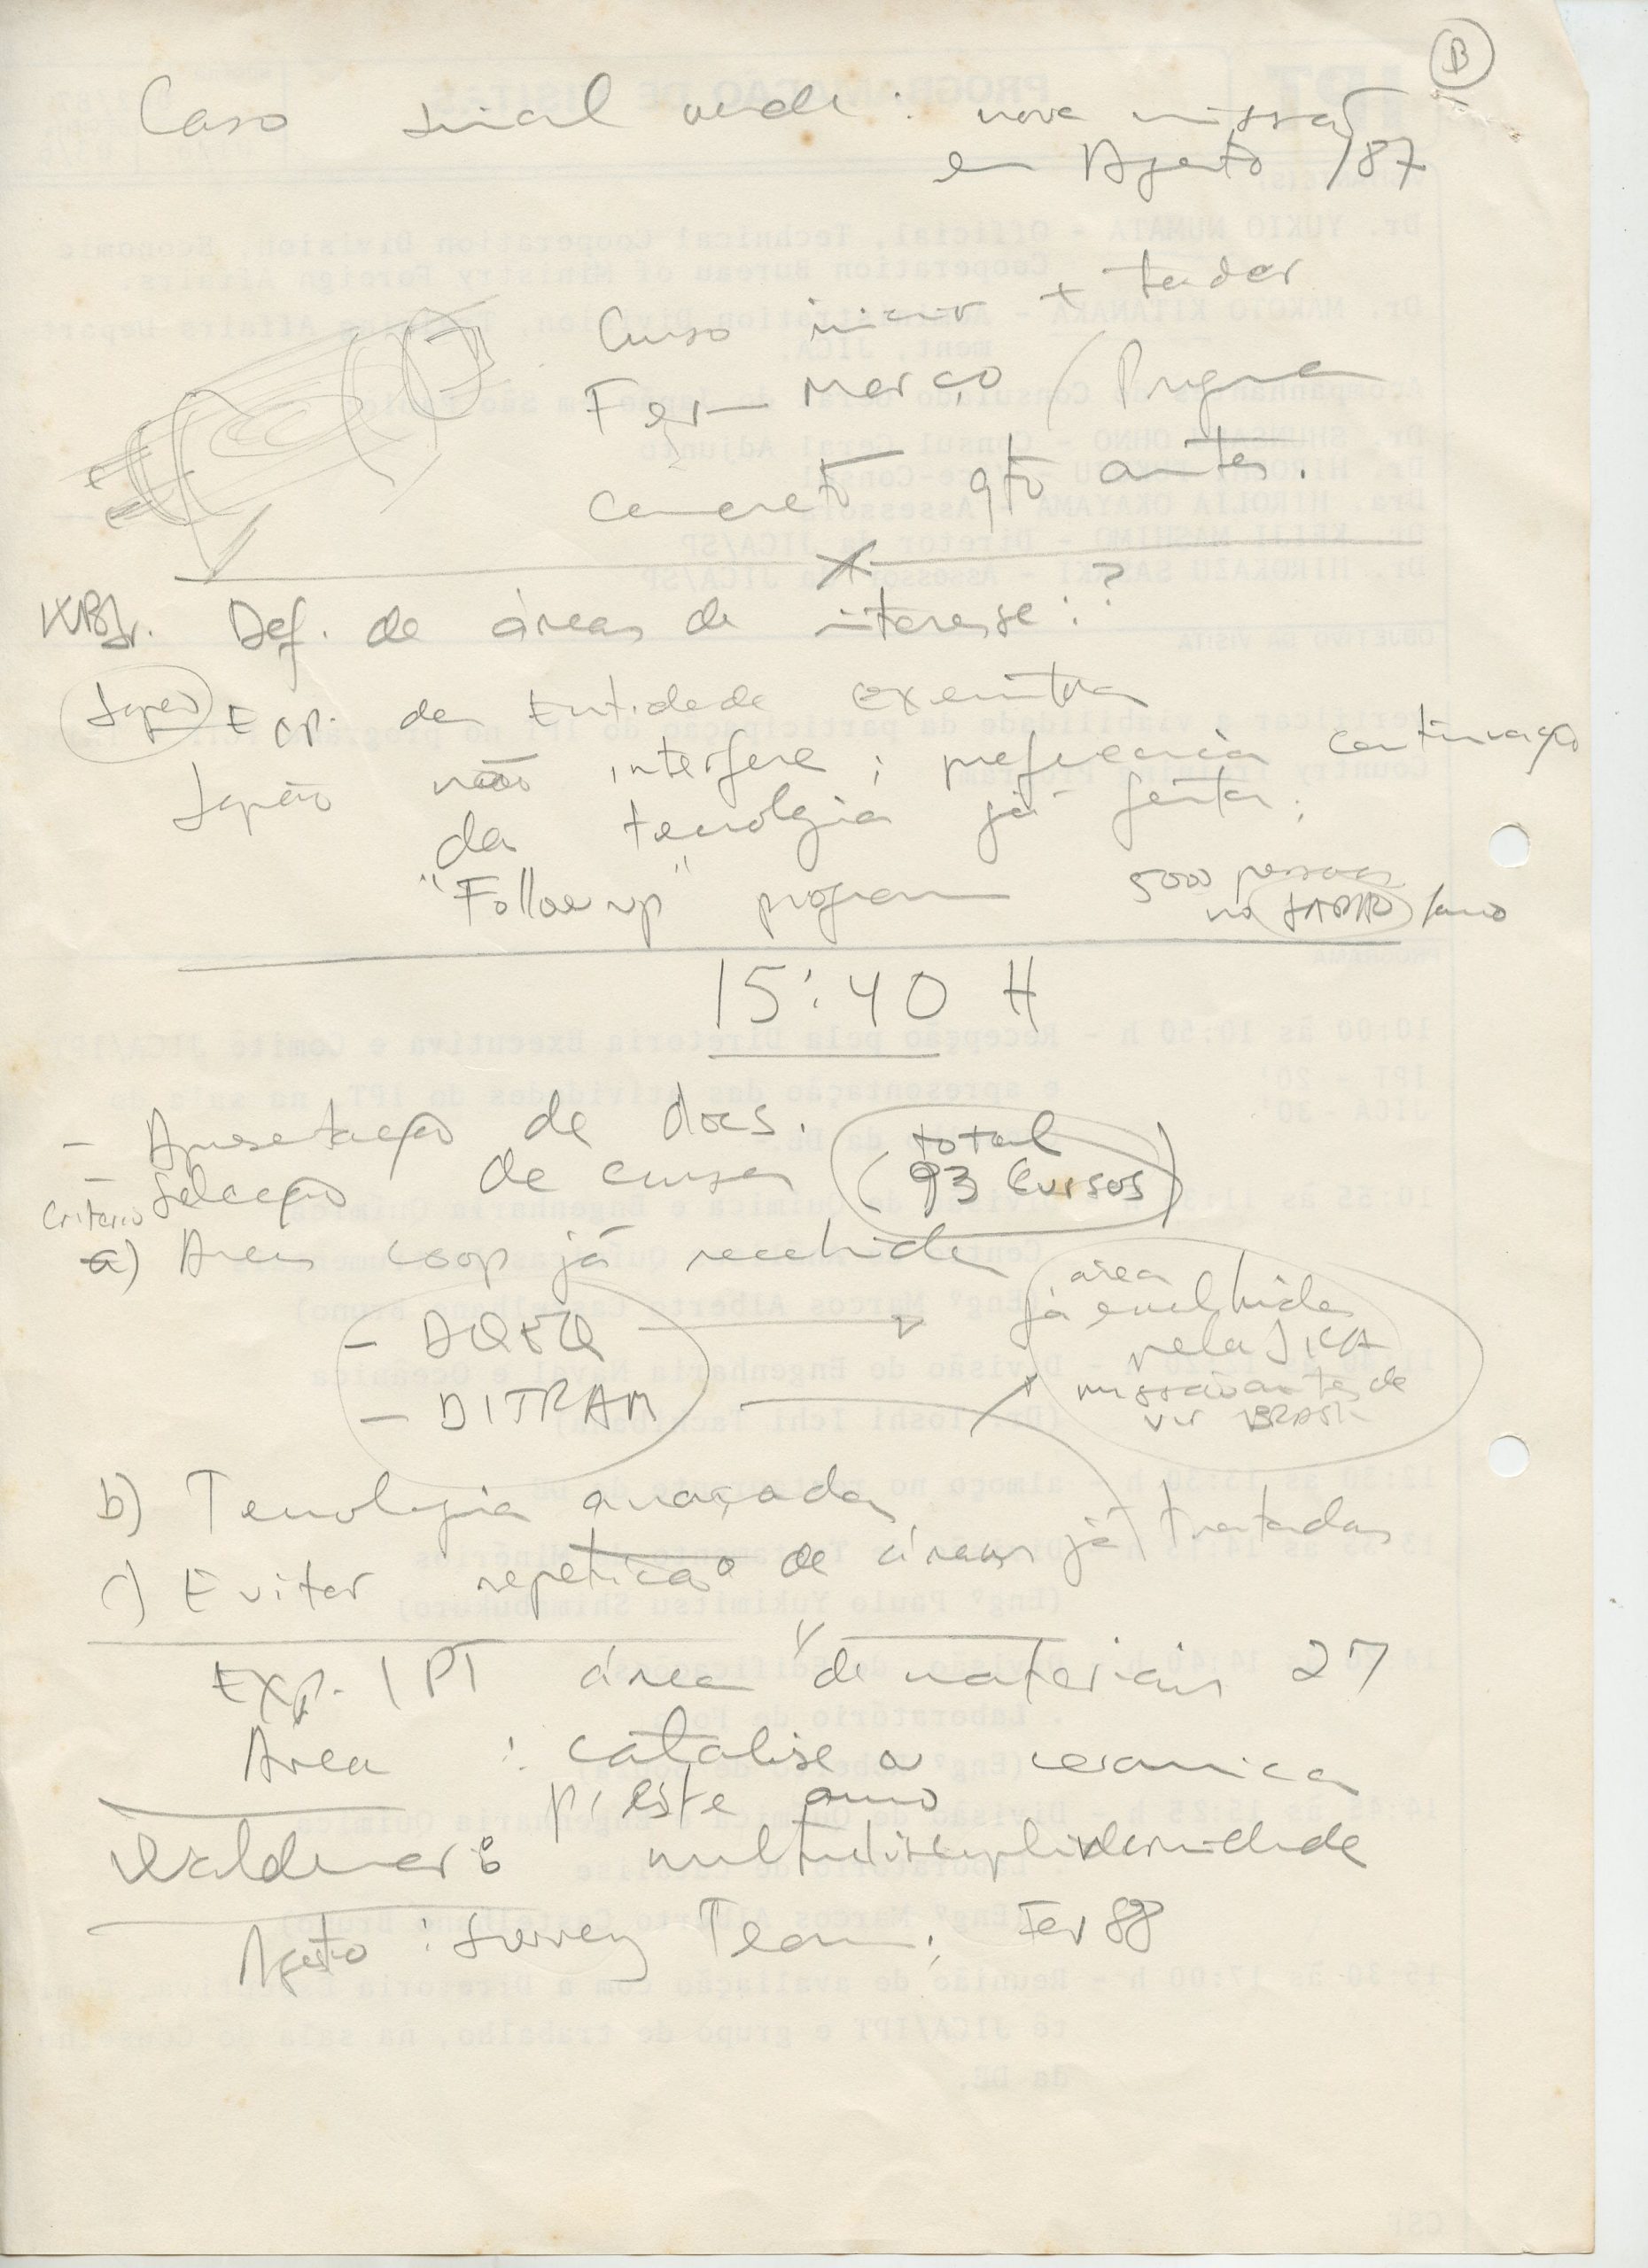 B
Caso sinal verde : nova missão
em Agosto /87
Curso iniciar + tardar
Fev — Março / Programa
concreto qto antes.
Def. de áreas de interesse : ?
Japão Exp. da Entidade executora
Japão não interfere ; preferencia continuação
da tecnologia já feita ;
"Follow up" program 5000 pessoas
no JAPÃO /ano
15:40 H
- Apresentação de docs.
- Seleção de cursos (total
93 Cursos)
Critério
a) Area coop já recebida
- DQEQ → área
já escolhida
pela JICA
- DITRAM → missão antes de
vir BRASIL
b) Tecnologia avaçada
c) Evitar repetição de áreas já tratadas
Exp. IPT área de materiais 27
Área : catalise ou ceramica
p/ este ano
Waldemar : multidisciplinariedade
Agosto : Survey Team ; Fev 88